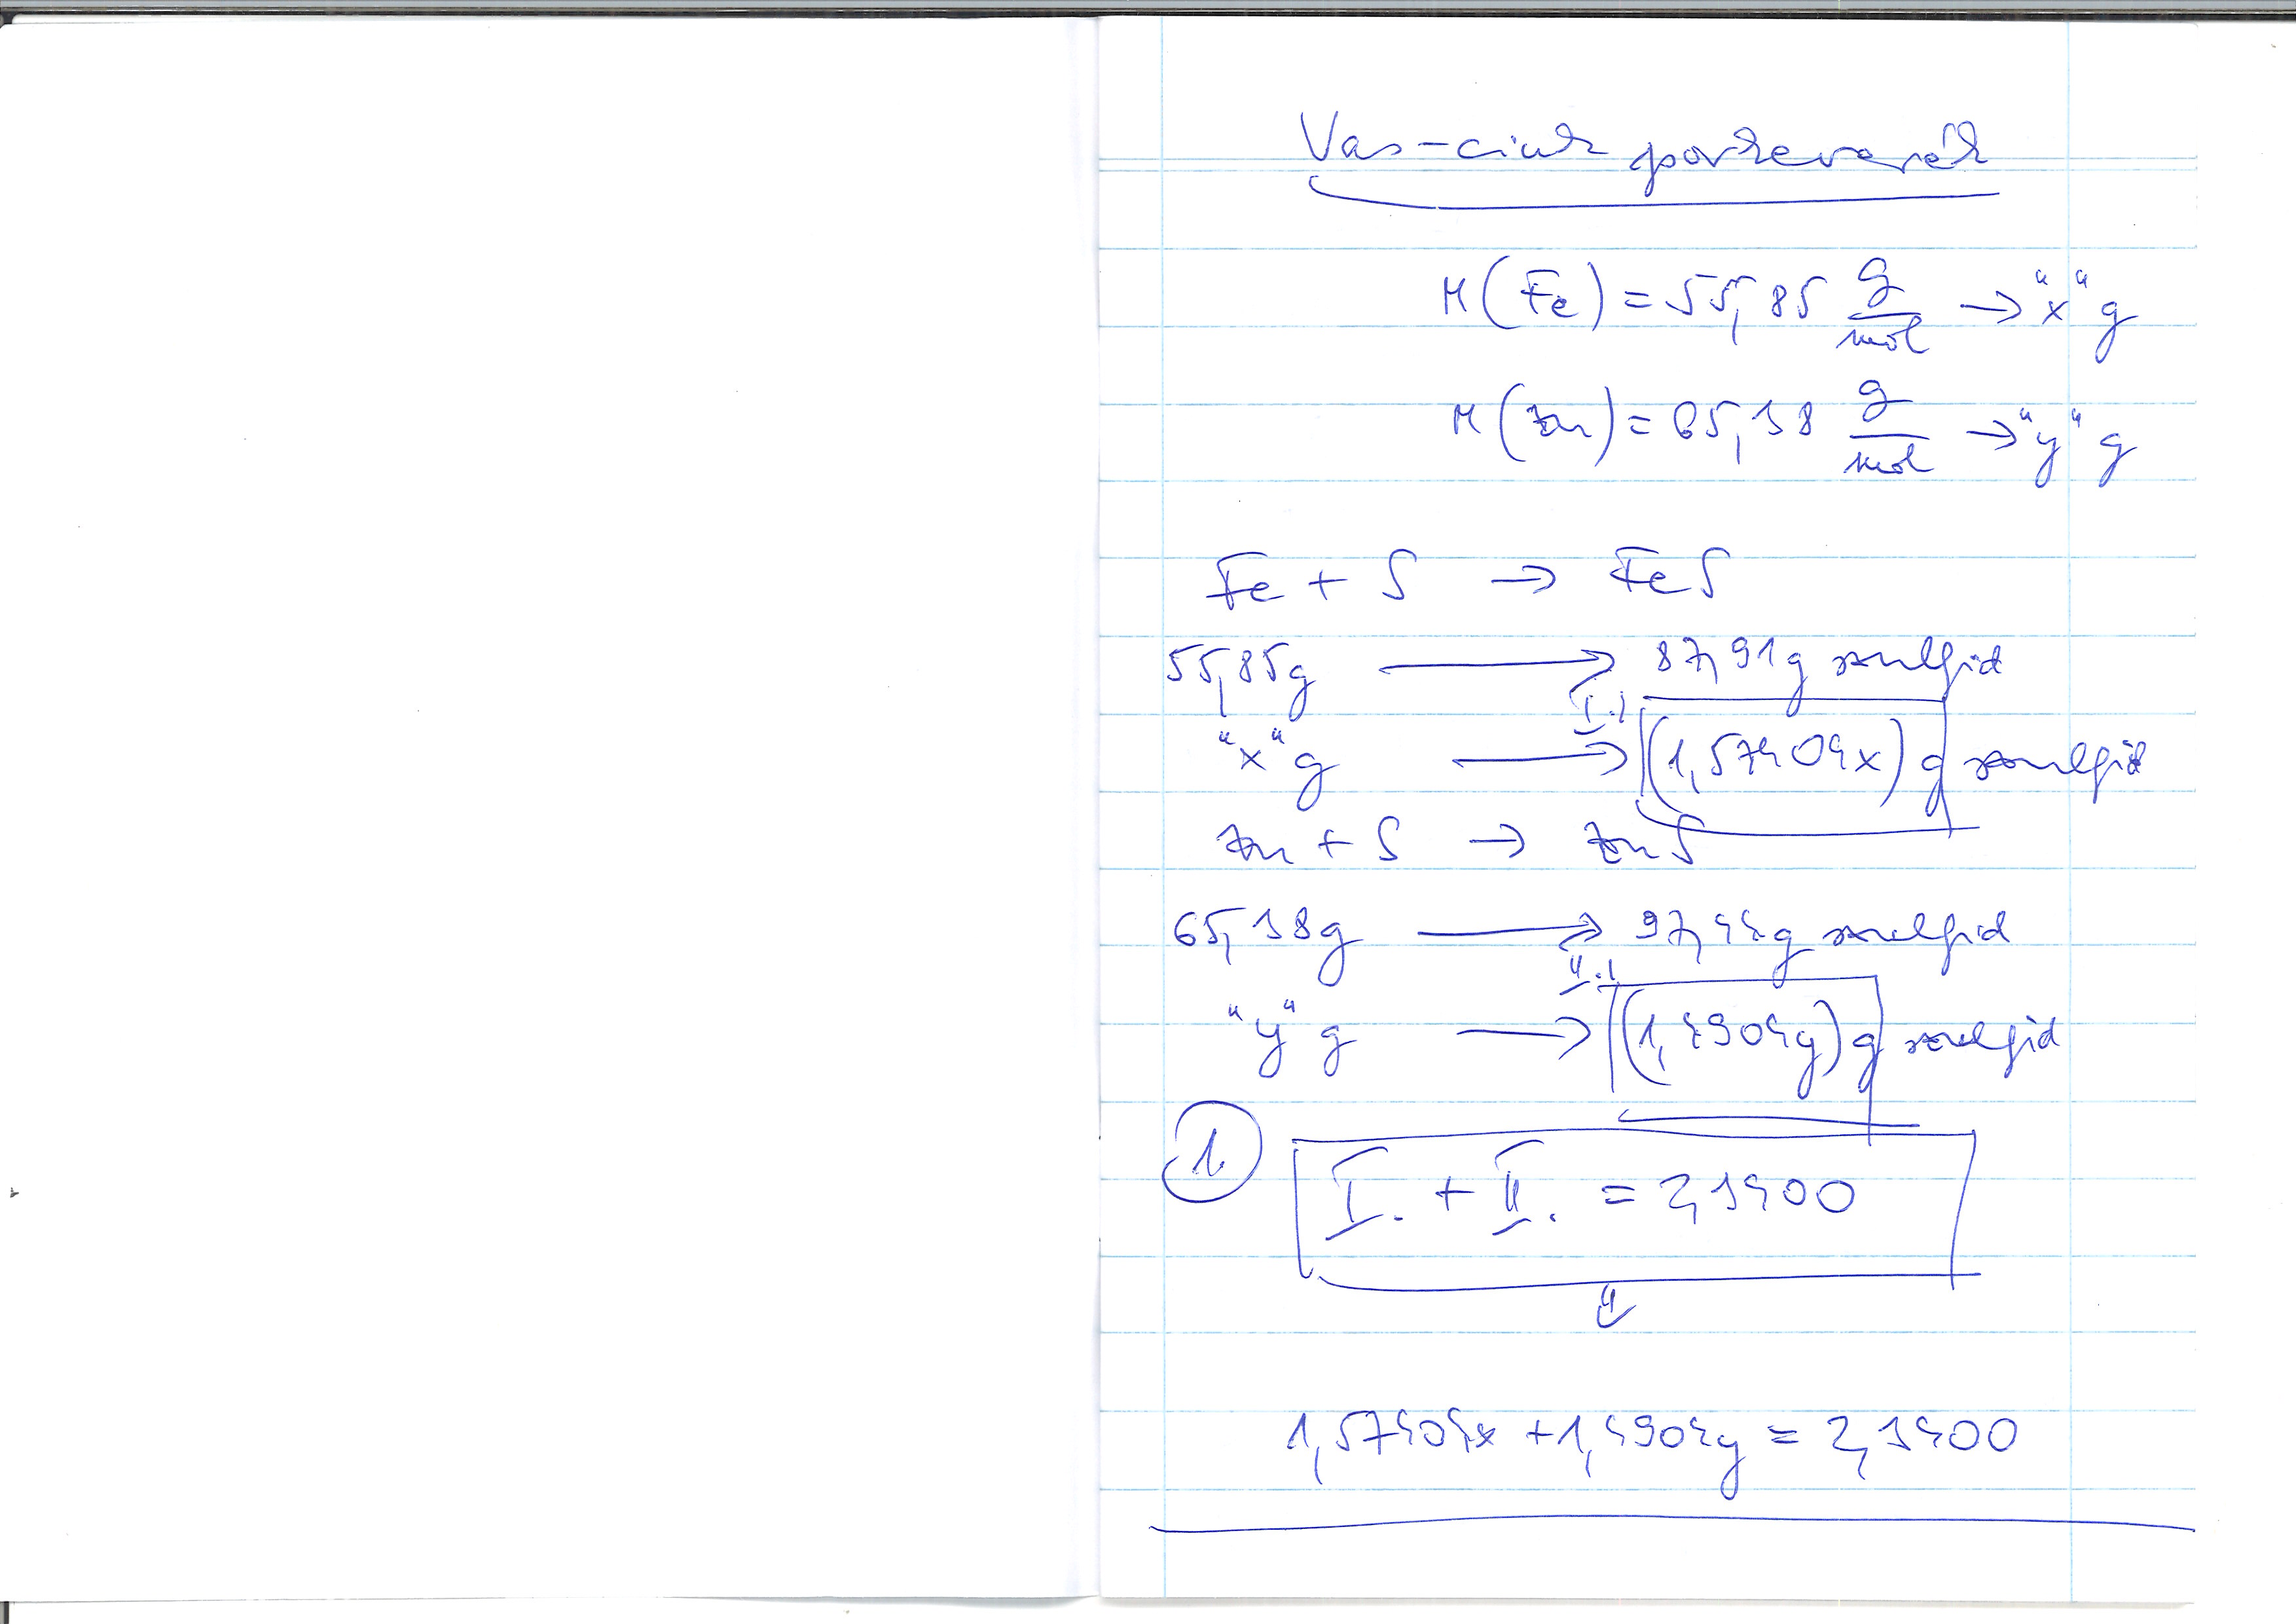 Vas-cink porkeverék
M(Fe) = 55,85 g/mol → "x" g
M(Zn) = 65,38 g/mol → "y" g
Fe + S → FeS
55,85g → 87,91g szulfid
I.
"x" g → (1,57404x) g szulfid
Zn + S → ZnS
65,38g → 97,44g szulfid
II.
"y" g → (1,4904y) g szulfid
1. I. + II. = 2,3400
⇓
1,57404x + 1,4904y = 2,3400